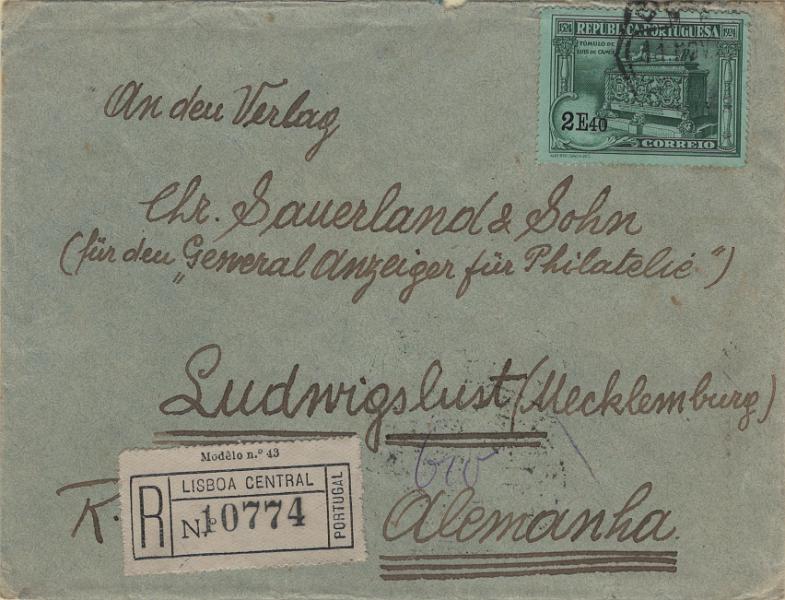 1524 REPUBLICA PORTUGUESA 1924
TÚMULO DE
LUIS DE CAMÕES
2E40
CORREIO
An den Verlag
Chr. Sauerland & Sohn
(für den „General Anzeiger für Philatelie")
Ludwigslust (Mecklemburg)
Modêlo n.º 43
R LISBOA CENTRAL
N.º 10774
PORTUGAL
R.
Alemanha.